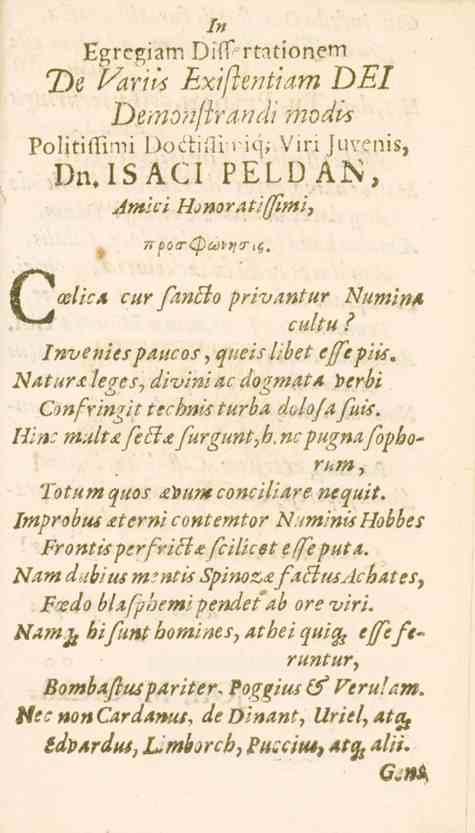 In
Egregiam Dissertationem
De Variis Existentiam DEI
Demonstrandi modis
Politissimi Doctissimiq; Viri Juvenis,
Dn. ISACI PELDAN,
Amici Honoratissimi,
προσφώνησις.
Cœlica cur sancto privantur Numina
cultu?
Invenies paucos, queis libet esse piis.
Naturæ leges, divini ac dogmata verbi
Confringit technis turba dolosa suis.
Hinc multæ sectæ surgunt, hinc pugna sopho-
rum,
Totum quos ævum conciliare nequit.
Improbus æterni contemtor Numinis Hobbes
Frontis perfrictæ scilicet esse puta.
Nam dubius mentis Spinozæ factus Achates,
Fœdo blasphemi pendet ab ore viri.
Namq; hi sunt homines, athei quiq; esse fe-
runtur,
Bombastus pariter, Poggius & Verulam.
Nec non Cardanus, de Dinant, Uriel, atq;
Edvardus, Limborch, Puccius, atq; alii.
Gens,